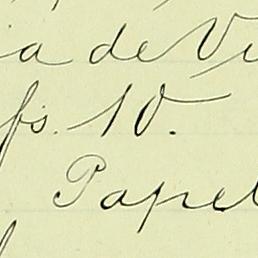 ia de Vi
fs. 10.
Papel